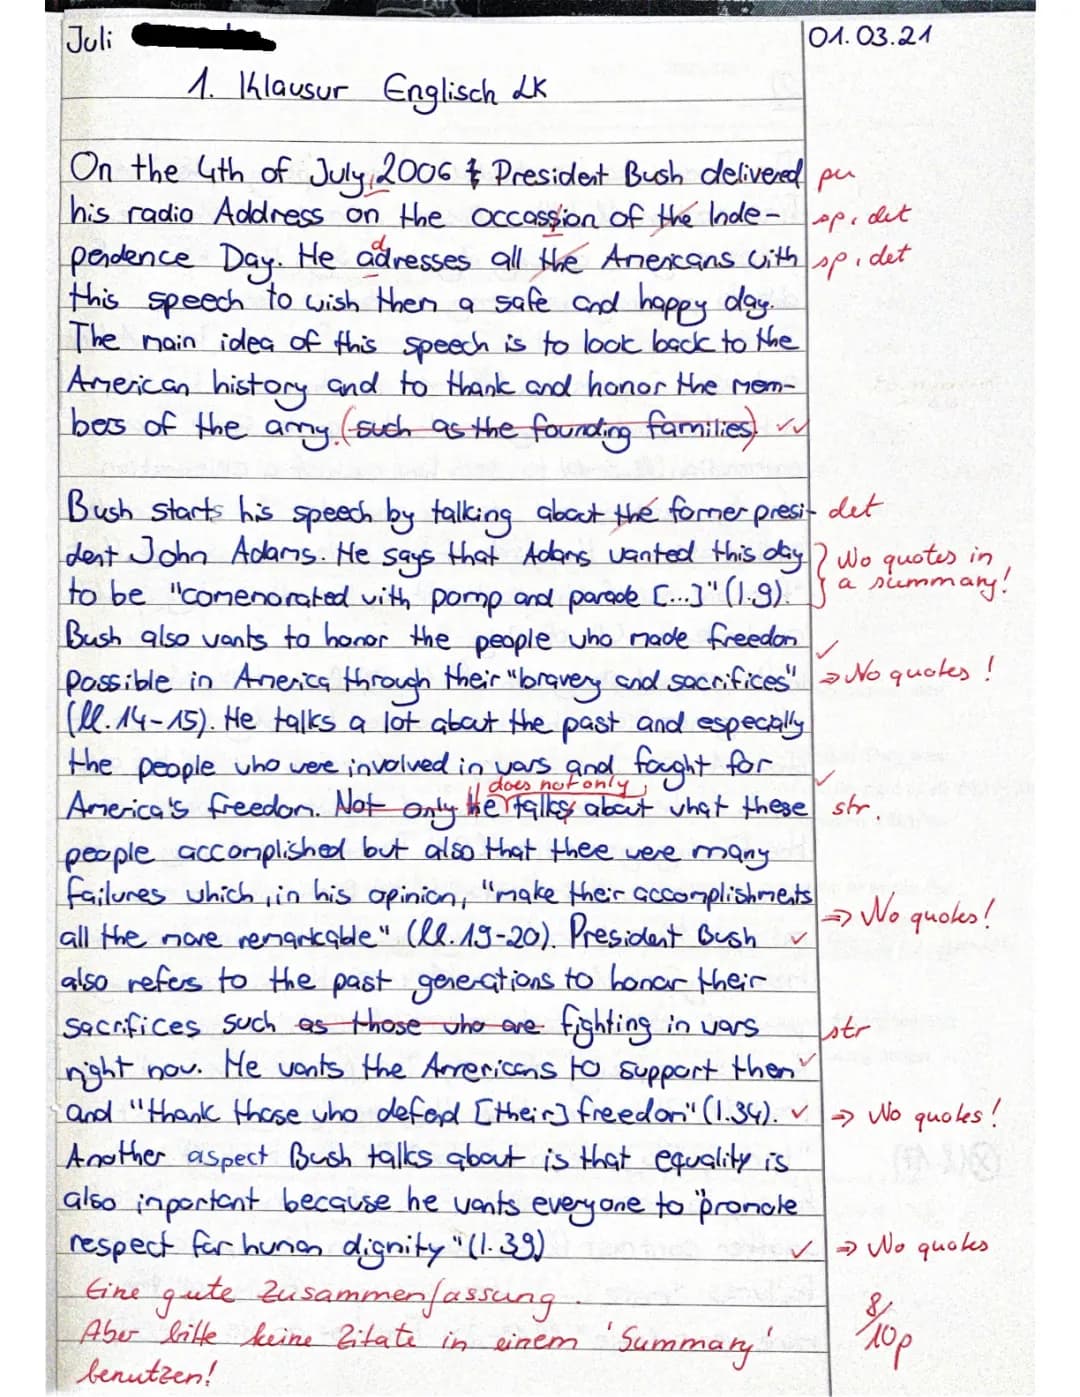 Juli 01.03.21
1. Klausur Englisch LK
On the 4th of July, 2006 President Bush delivered pu
his radio Address on the occassion of the Inde- sp, det
pendence Day. He addresses all the Americans with sp, det
this speech to wish them a safe and happy day.
The main idea of this speech is to look back to the
American history and to thank and honor the mem-
bers of the army. (such as the founding families). ✓✓
Bush starts his speech by talking about the former presi- det
dent John Adams. He says that Adams wanted this day } No quotes in
to be "comemorated with pomp and parade [...]" (l.9). a summary!
Bush also wants to honor the people who made freedom ✓
possible in America through their "bravery and sacrifices" => No quotes!
(ll. 14-15). He talks a lot about the past and especially
the people who were involved in wars and fought for ✓
does not only
America's freedom. Not only he talks about what these str.
people accomplished but also that there were many
failures which, in his opinion, "make their accomplishments => No quotes!
all the more remarkable" (ll. 19-20). President Bush ✓
also refers to the past generations to honor their
sacrifices such as those who are fighting in wars str
right now. He wants the Americans to support them ✓
and "thank those who defend [their] freedom" (l.34). ✓ => No quotes!
Another aspect Bush talks about is that equality is
also important because he wants everyone to "promote
respect for human dignity" (l.39) ✓ => No quotes
Eine gute Zusammenfassung. 8/10p
Aber bitte keine Zitate in einem 'Summary'
benutzen!